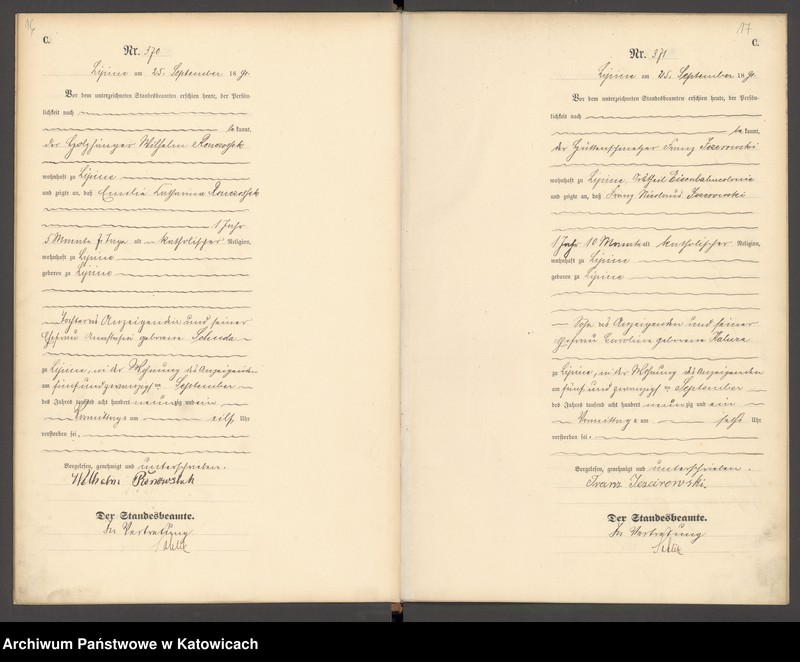 16
C.
Nr. 370
Lipine am 25. September 18 91.
Vor dem unterzeichneten Standesbeamten erschien heute, der Persön-
lichkeit nach
be kannt,
der Holzhänger Wilhelm
wohnhaft zu Lipine
und zeigte an, daß Emilie Katharina
1 Jahr
5 Monate Tage alt katholischer Religion,
wohnhaft zu Lipine
geboren zu Lipine
Tochter des Anzeigenden und seiner
Ehefrau geborene
zu Lipine, in der Wohnung des Anzeigenden
am fünf und zwanzigsten September
des Jahres tausend acht hundert neunzig und ein
Vormittags um eilf Uhr
verstorben sei.
Vorgelesen, genehmigt und unterschrieben.
Wilhelm
Der Standesbeamte.
In Vertretung
17
C.
Nr. 371
Lipine am 25. September 18 91.
Vor dem unterzeichneten Standesbeamten erschien heute, der Persön-
lichkeit nach
be kannt,
der Hüttenschmelzer Franz Jezierowski
wohnhaft zu Lipine, Ortstheil Eisenbahncolonie
und zeigte an, daß Franz Jezierowski
1 Jahr 10 Monate alt katholischer Religion,
wohnhaft zu Lipine
geboren zu Lipine
Sohn des Anzeigenden und seiner
Ehefrau Caroline geborene Kaluza
zu Lipine, in der Wohnung des Anzeigenden
am fünf und zwanzigsten September
des Jahres tausend acht hundert neunzig und ein
Vormittags um sechs Uhr
verstorben sei.
Vorgelesen, genehmigt und unterschrieben.
Franz
Der Standesbeamte.
In Vertretung
Archiwum Państwowe w Katowicach